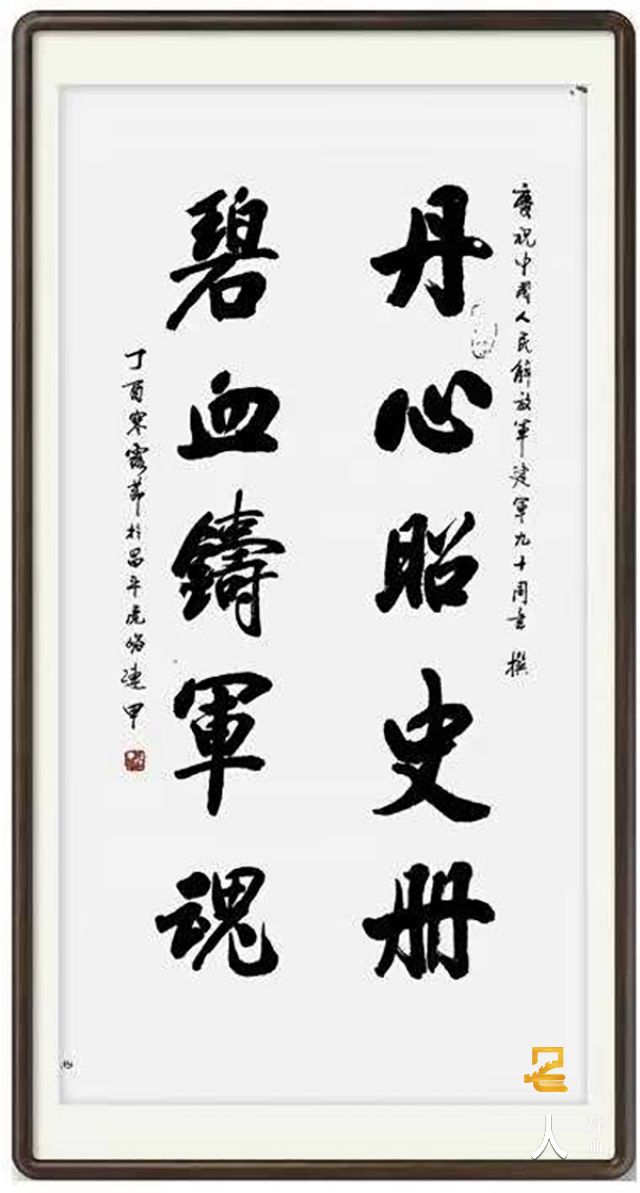 慶祝中國人民解放軍建軍九十周年 撰
丹心昭史册
碧血鑄軍魂
丁酉寒露節於昌平虎峪連甲
人